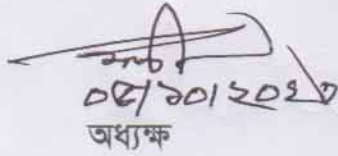 ০৫/১০/২০২৩
অধ্যক্ষ